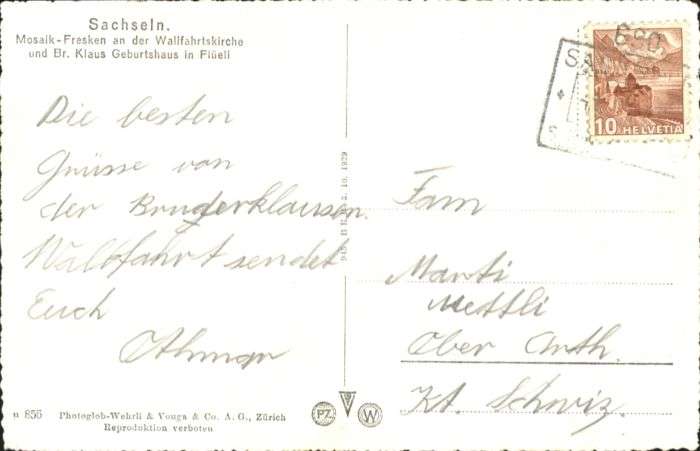 Sachseln.
Mosaik-Fresken an der Wallfahrtskirche
und Br. Klaus Geburtshaus in Flüeli
Die besten
Grüsse von
der Bruderklausen
Wallfahrt sendet
Euch
Othmar
Fam
Marti
Mettli
Ober Arth.
Kt. Schwiz.
10 HELVETIA
u 856 Photoglob-Wehrli & Vouga & Co. A. G., Zürich
Reproduktion verboten
PZ W